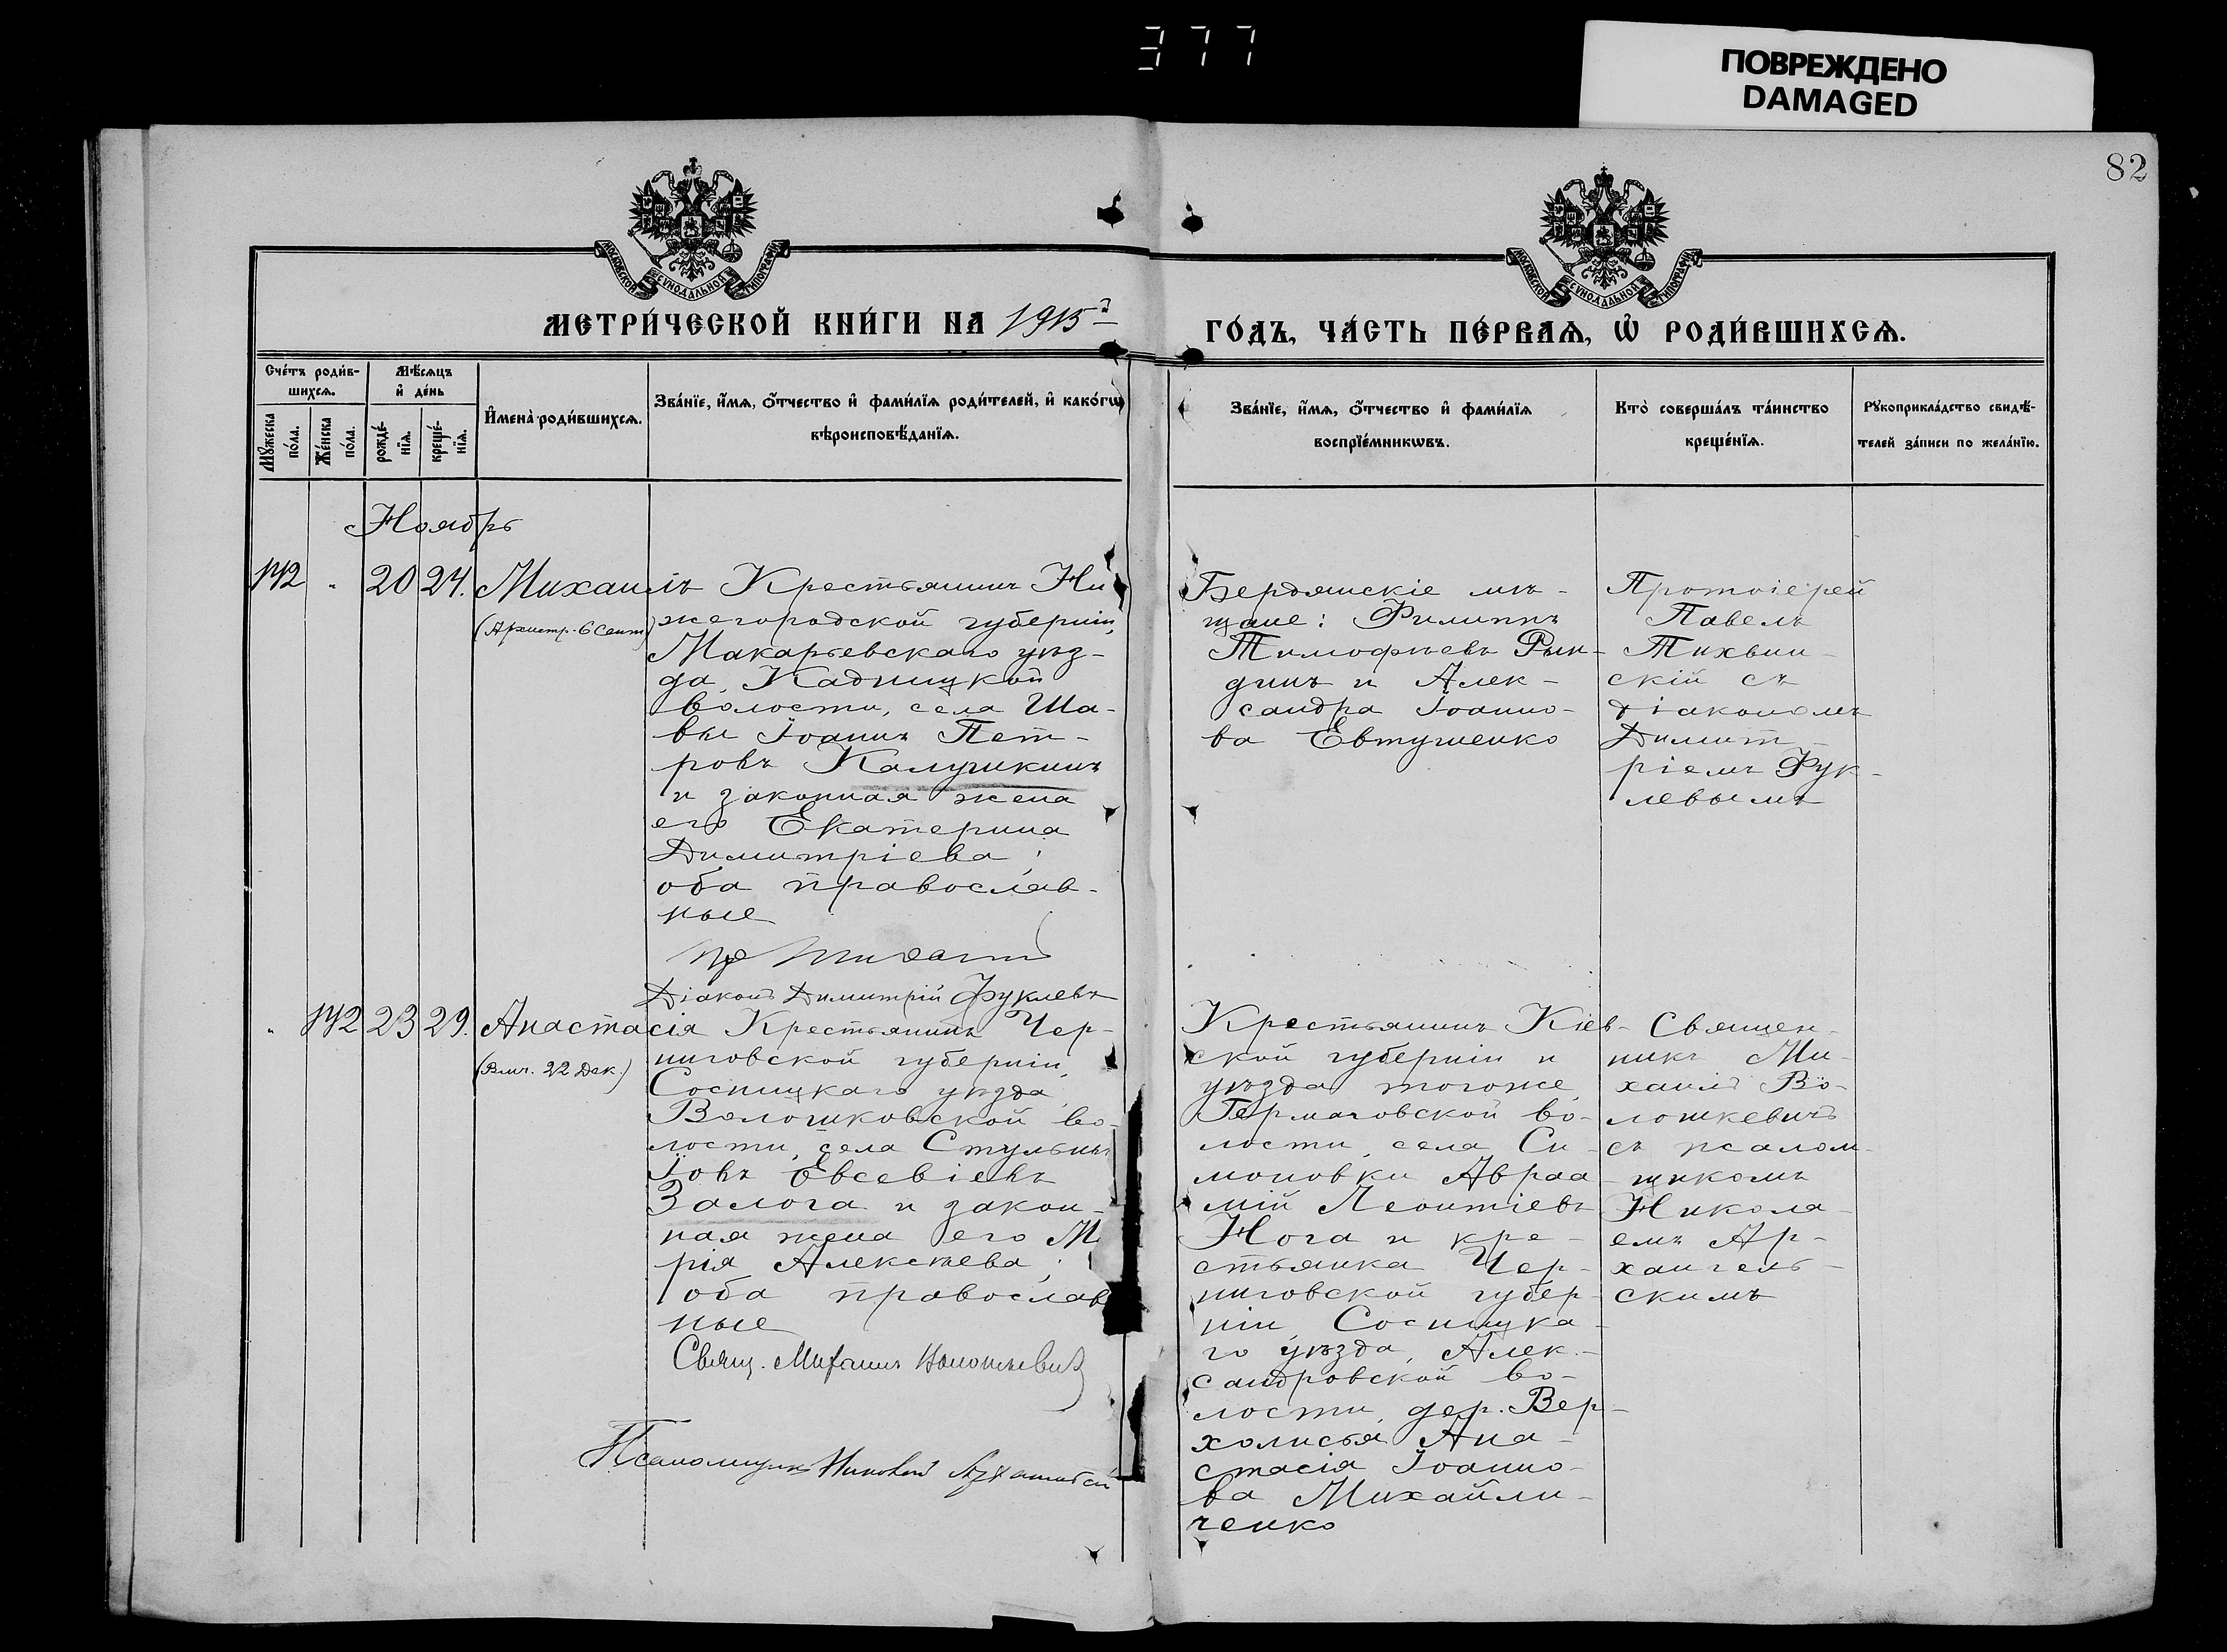 377
ПОВРЕЖДЕНО
DAMAGED
82
МОСКОВСКОЙ СѴНОДАЛЬНОЙ ТИПОГРАФІИ
МОСКОВСКОЙ СѴНОДАЛЬНОЙ ТИПОГРАФІИ
МЕТРИ́ЧЕСКОЙ КНИ́ГИ НА 1915й
ГО́ДЪ, ЧА́СТЬ ПЕ́РВАѦ, Ѽ РОДИ́ВШИХСѦ.
Сче́тъ роди́в-
шихсѧ.
Мꙋ́жеска по́ла.
Же́нска по́ла.
Мѣ́сѧцъ
и҆ де́нь
рожде́-
нїѧ.
креще́-
нїѧ.
И҆мена̀ роди́вшихсѧ.
Зва́нїе, и҆́мѧ, ѻ҆́тчество и҆ фами́лїѧ роди́телей, и҆ како́гѡ
вѣроисповѣ́данїѧ.
Зва́нїе, и҆́мѧ, ѻ҆́тчество и҆ фами́лїѧ
воспрїе́мникѡвъ.
Кто̀ соверша́лъ та́инство
креще́нїѧ.
Рꙋкоприкла́дство свидѣ́-
телей за́писи по жела́нїю.
Ноябрь
142 " 20 24. Михаилъ
(Архистр. 6 Сент)
Крестьянинъ Ни
жегородской губерніи,
Макарьевскаго уѣз-
да, Кадницкой
волости, села Ша-
вы Іоаннъ Пет-
ровъ Калушкинъ
и законная жена
его Екатерина
Димитріева;
оба православ-
ные
Діаконъ Димитрій Фуклевъ
Бердянскіе мѣ-
щане: Филиппъ
Тимофѣевъ Рын-
динъ и Алек-
сандра Іоанно-
ва Евтушенко
Протоіерей
Павелъ
Тихвин-
скій съ
діакономъ
Димит-
ріемъ Фук-
левымъ
" 142 23 29. Анастасія
(Влмч. 22 Дек.)
Крестьянинъ Чер-
ниговской губерніи,
Сосницкаго уѣзда,
Волошковской во-
лости, села
Іовъ Евсевіевъ
Залога и закон-
ная жена его М
рія Алексѣева;
оба православ
ные
Свящ. Михаилъ Волошкевичъ
Псаломщикъ Николай Архангельскій
Крестьянинъ Кіев-
ской губерніи и
уѣзда тогоже,
Германовской во-
лости, села Си-
моновки Авраа
мій Леонтіевъ
Нога и кре-
стьянка Чер-
ниговской губер-
ніи, Сосницка-
го уѣзда, Алек-
сандровской во-
лости, дер. Вер-
холисья Ана-
стасія Іоанно-
ва Михайли-
ченко
Священ-
никъ Ми-
хаилъ Во-
лошкевичъ
съ псалом-
щикомъ
Никола-
емъ Ар-
хангель-
скимъ